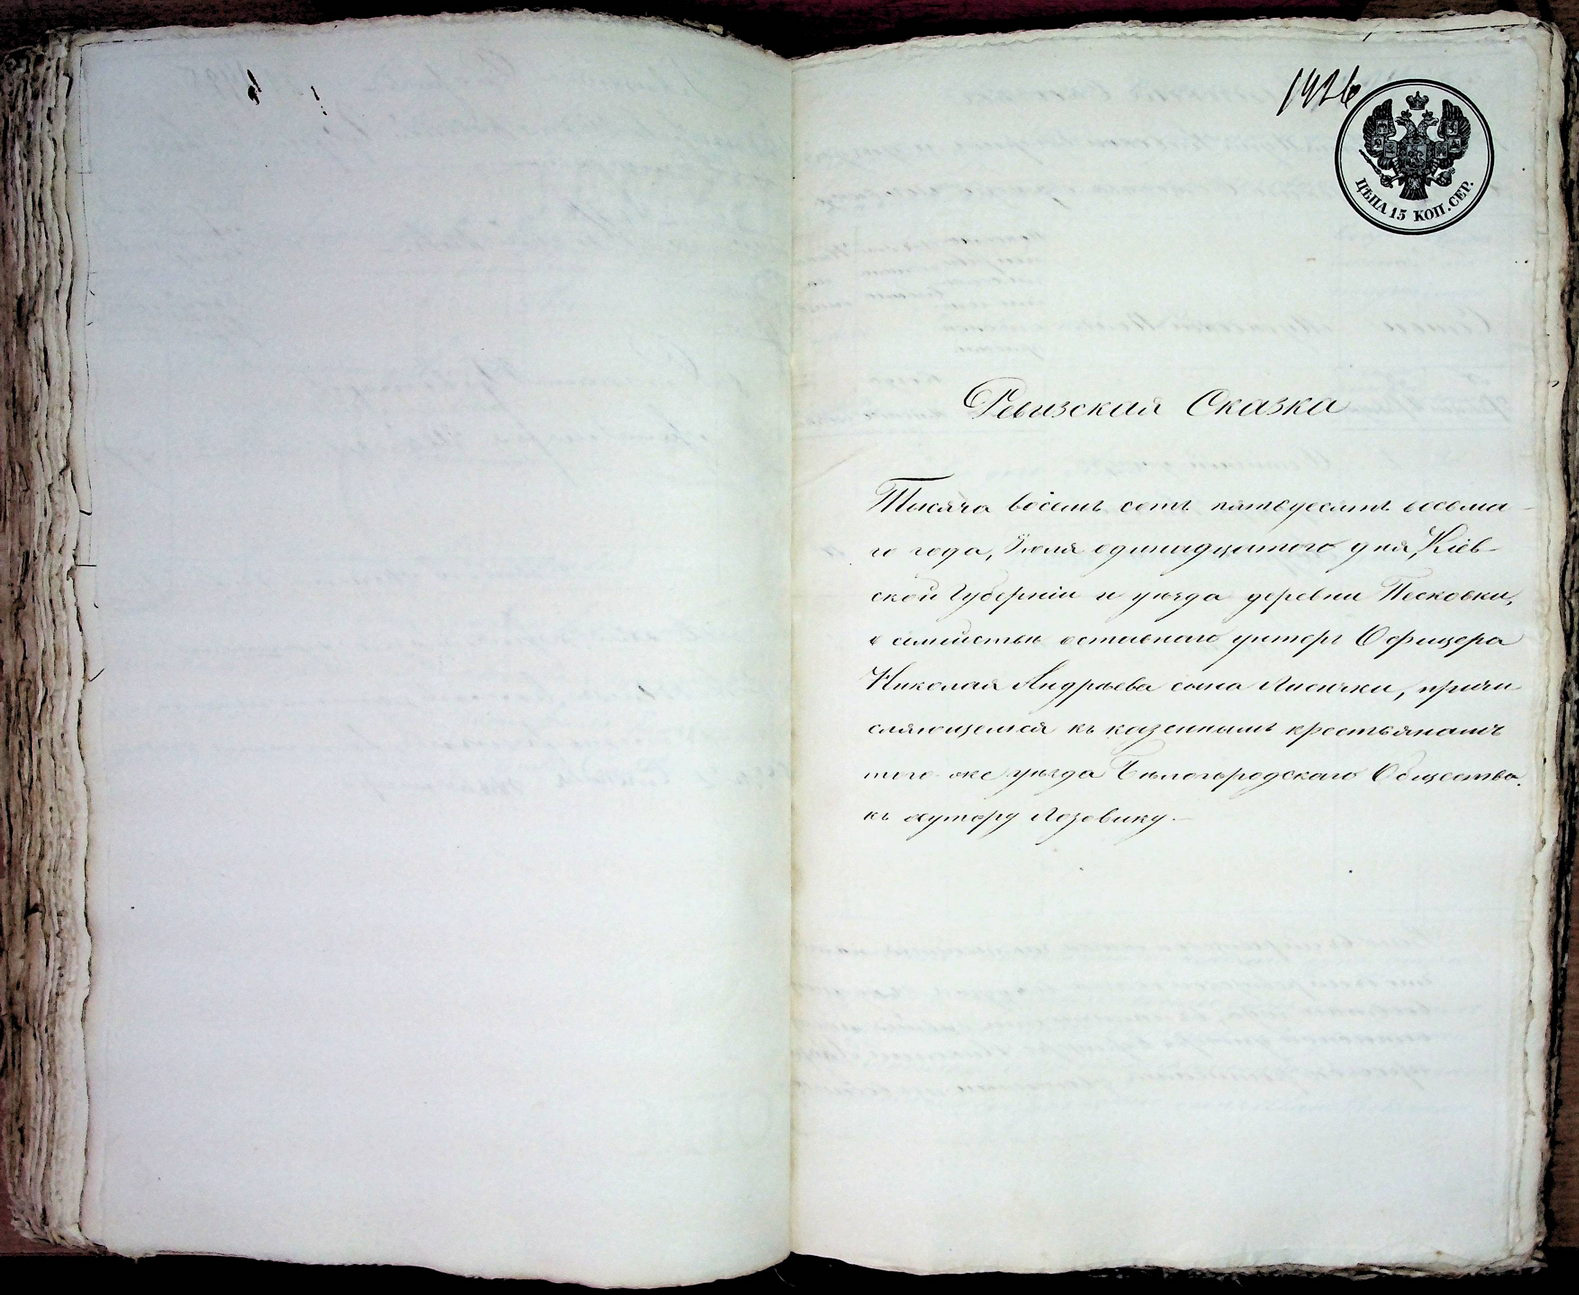 1926
ЦѢНА 15 КОП. СЕР.
Ревизская Сказка
Тысяча восемь сотъ пятьдесятъ восьма-
го года, Іюля одинадцатого дня, Кіев-
ской Губерніи и уѣзда деревни Песковки,
о семействѣ отставного унтеръ Офицера
Николая Андрѣева сына Лисички, причи-
сляющемся къ казеннымъ крестьянамъ
того же уѣзда Бѣлогородскаго Общества,
къ хутору Лозовику.—